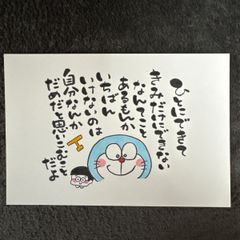 ひとにできて
きみだけにできない
なんてこと
あるもんか
いちばん
いけないのは
自分なんか
だめだと思いこむこと
だよ